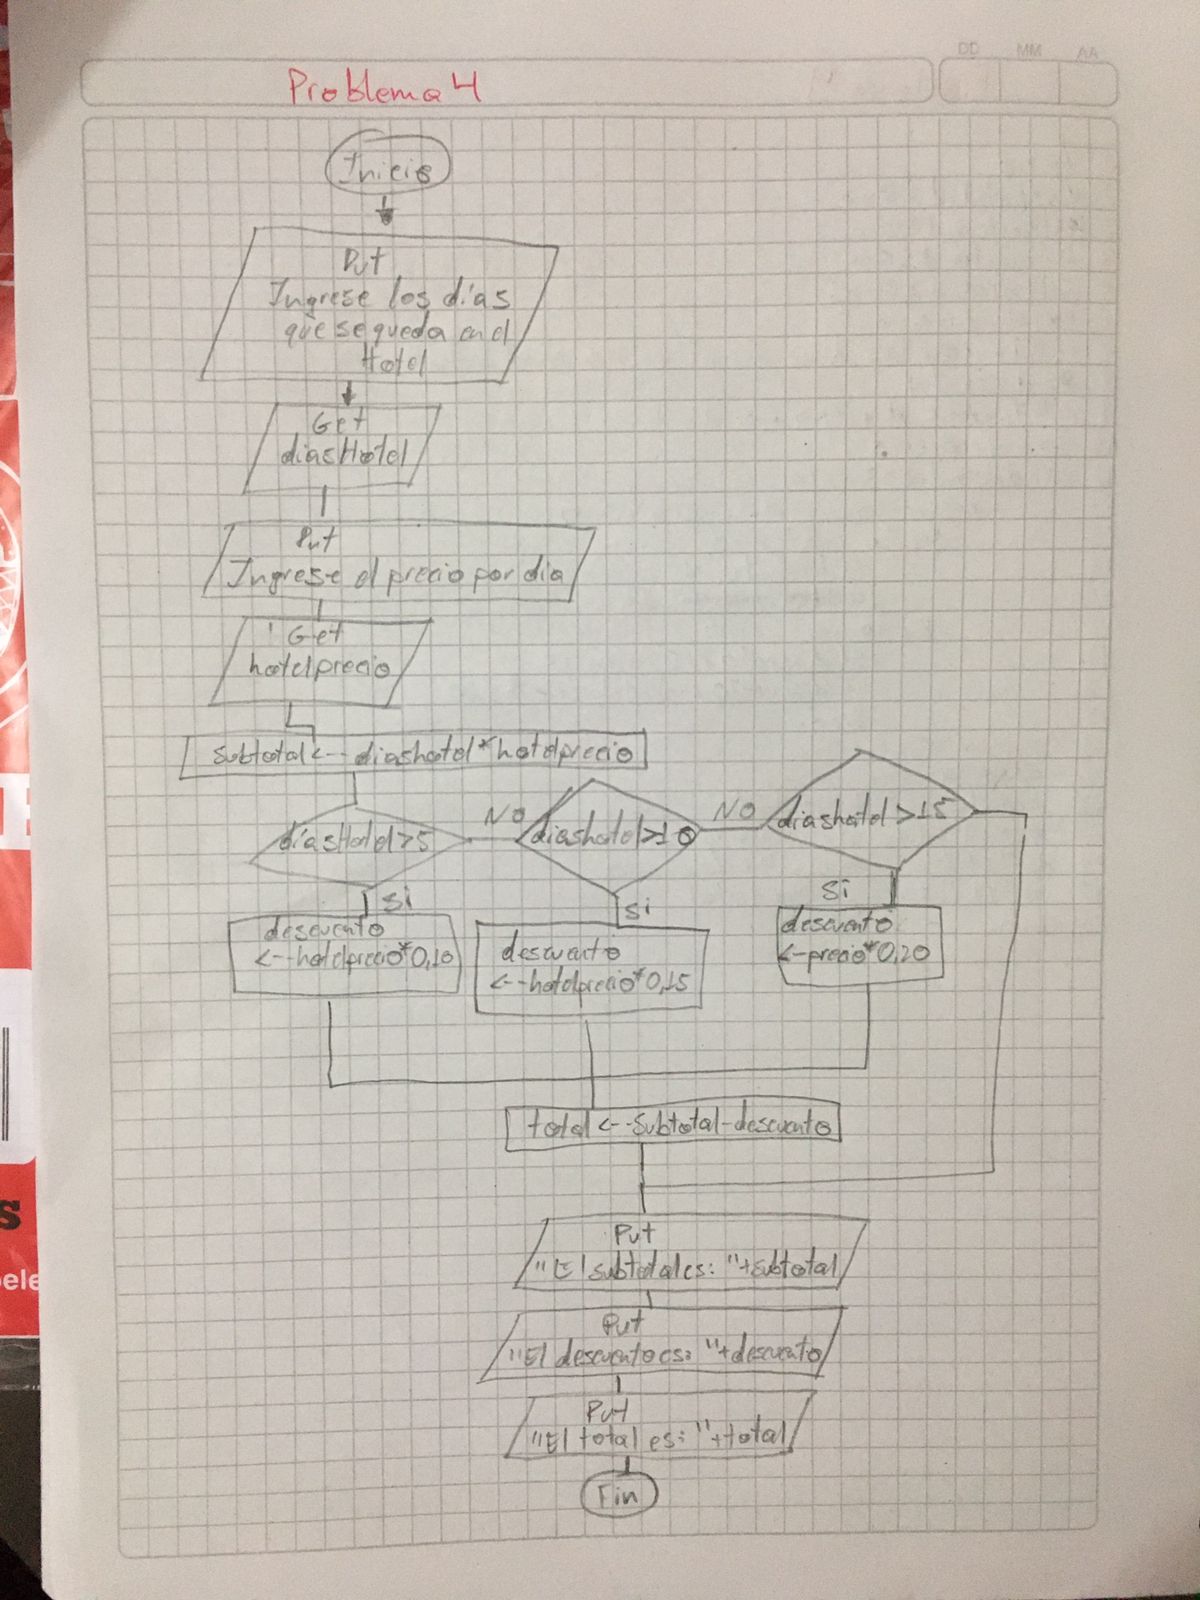 DD MM AA
Problema 4
Inicio
Put
Ingrese los días
que se queda en el
Hotel
Get
diasHotel
Put
Ingrese el precio por dia
Get
hotelprecio
subtotal<--diashotel*hotelprecio
diasHotel>5
NO
diashotel>10
NO
diashotel>15
si
si
si
descuento
<--hotelprecio*0,10
descuento
<--hotelprecio*0,15
descuento
<--precio*0,20
total<--subtotal-descuento
Put
"El subtotal es: "+subtotal
Put
"El descuento es: "+descuento
Put
"El total es: "+total
Fin
s